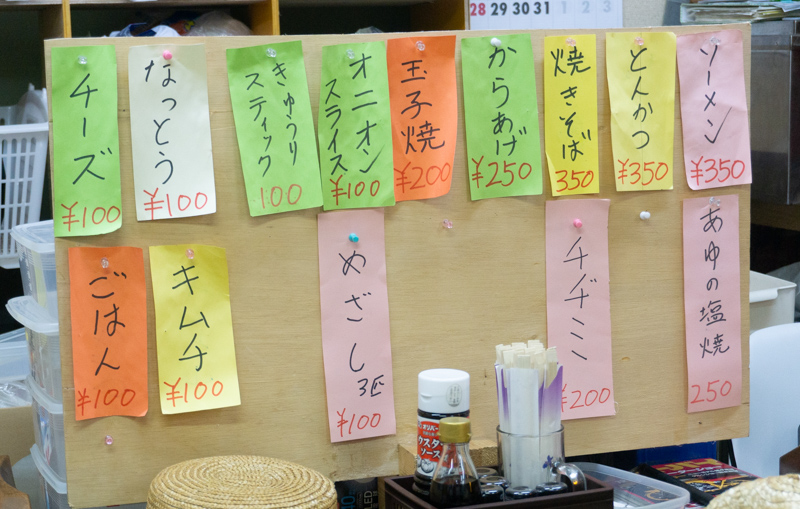 28 29 30 31 1 2 3
チーズ
¥100
なっとう
¥100
きゅうり
スティック
100
オニオン
スライス
¥100
玉子焼
¥200
からあげ
¥250
焼きそば
350
とんかつ
¥350
ソーメン
¥350
ごはん
¥100
キムチ
¥100
めざし
3匹
¥100
チヂミ
¥200
あゆの塩焼
250
オリバー
ウスター
ソース